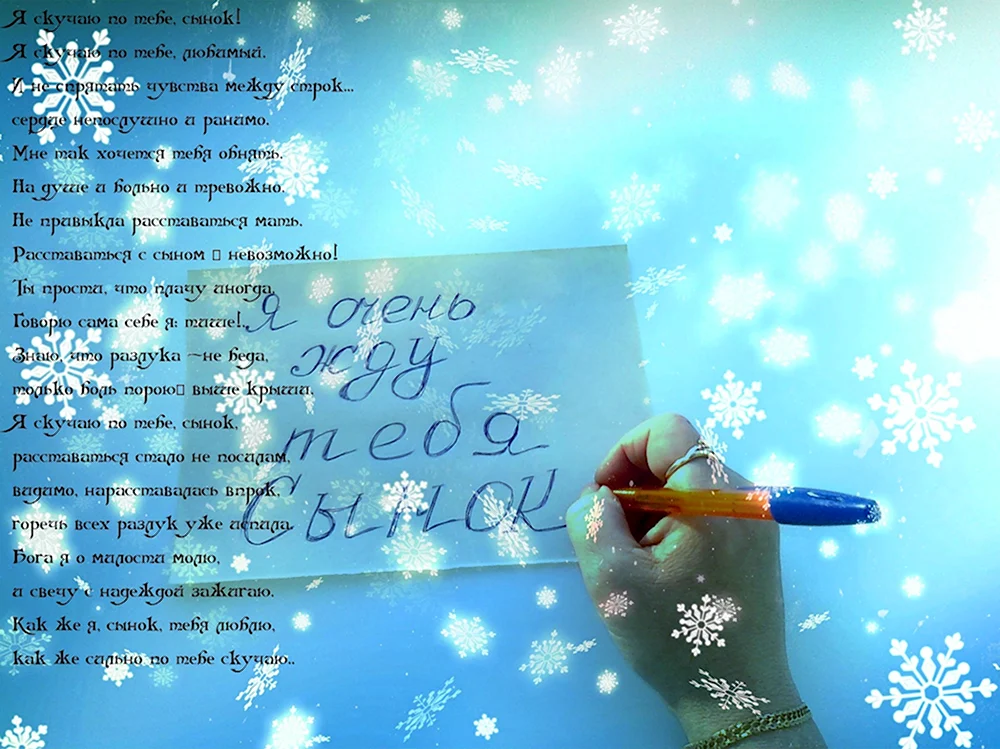 Я скучаю по тебе, сынок!
Я скучаю по тебе, любимый.
И не спрятать чувства между строк...
сердце непослушно и ранимо.
Мне так хочется тебя обнять.
На душе и больно и тревожно.
Не привыкла расставаться мать.
Расставаться с сыном □ невозможно!
Ты прости, что плачу иногда,
Говорю сама себе я: тише!..
Знаю, что разлука —не беда,
только боль порою□ выше крыши.
Я скучаю по тебе, сынок,
расставаться стало не посилам,
видимо, нарасставалась впрок,
горечь всех разлук уже испила.
Бога я о милости молю,
и свечу с надеждой зажигаю.
Как же я, сынок, тебя люблю,
как же сильно по тебе скучаю..
я очень
жду
тебя
Сынок